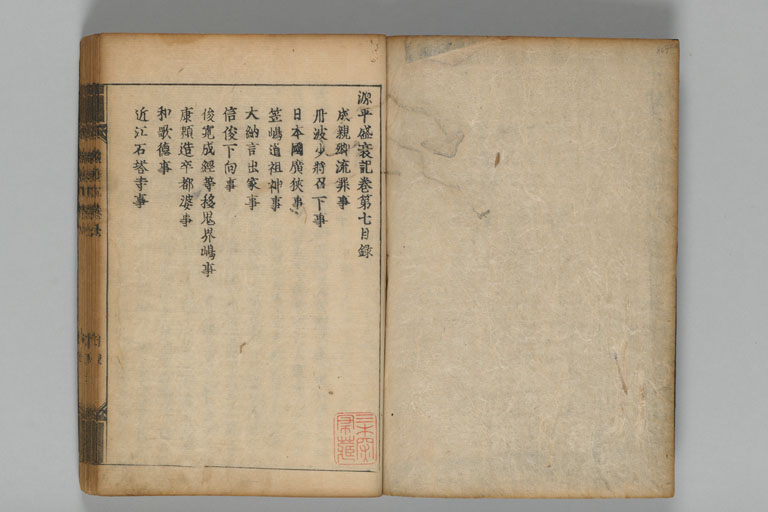 源平盛衰記巻第七目録
成親卿流罪事
丹波少将召下事
日本國廣狹事
笠嶋道祖神事
大納言出家事
信俊下向事
俊寛成經等移鬼界嶋事
康頼造卒都婆事
和歌德事
近江石塔寺事